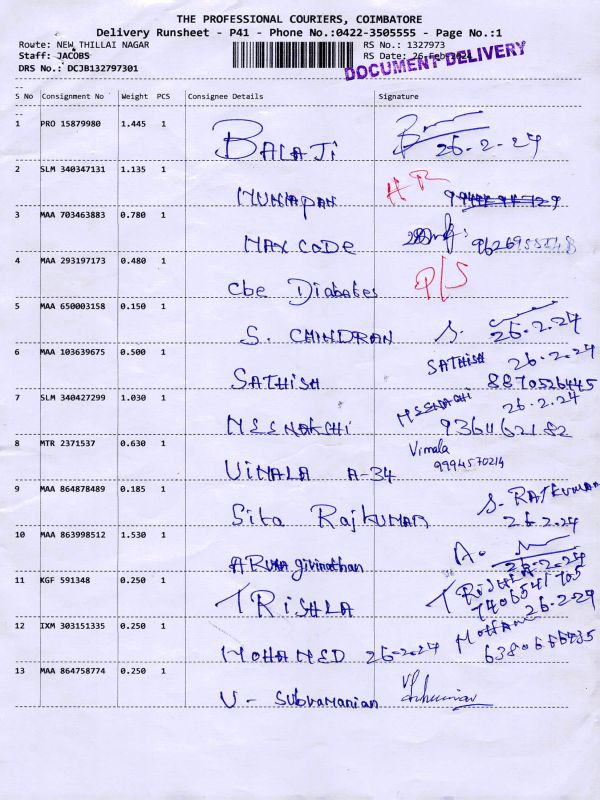 THE PROFESSIONAL COURIERS, COIMBATORE
Delivery Runsheet - P41 - Phone No.:0422-3505555 - Page No.:1
Route: NEW THILLAI NAGAR RS No.: 1327973
Staff: JACOBS RS Date: 26-Feb-2024
DOCUMENT DELIVERY
DRS No.: DCJB132797301
S No Consignment No Weight PCS Consignee Details Signature
1 PRO 15879980 1.445 1
BALAJI 26-2-24
2 SLM 340347131 1.135 1
3 MAA 703463883 0.780 1
MAX CODE
4 MAA 293197173 0.480 1
Cbe Diabetes P/S
5 MAA 650003158 0.150 1
S. CHINDRAN S. 26-2-24
6 MAA 103639675 0.500 1
SATHISH SATHISH 26-2-24
8870526445
7 SLM 340427299 1.030 1
MEENAKSHI MEENAKSHI 26-2-24
9361162182
8 MTR 2371537 0.630 1
VIMALA A-34 Vimala
9994570214
9 MAA 864878489 0.185 1
Sita RajKUMAR S. RAJKUMAR
26-2-24
10 MAA 863998512 1.530 1
A. 26-2-24
11 KGF 591348 0.250 1
TRISHLA TRISHLA
7406541705
26-2-24
12 IXM 303151335 0.250 1
MOHAMED 26-2-24
13 MAA 864758774 0.250 1
V- Subramanian